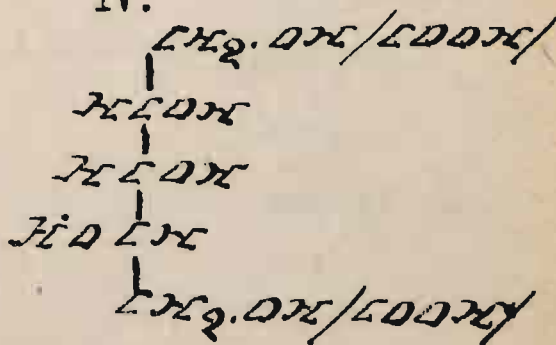 N.
CH2.OH/COOH/
HCOH
HCOH
HOCH
CH2.OH/COOH/